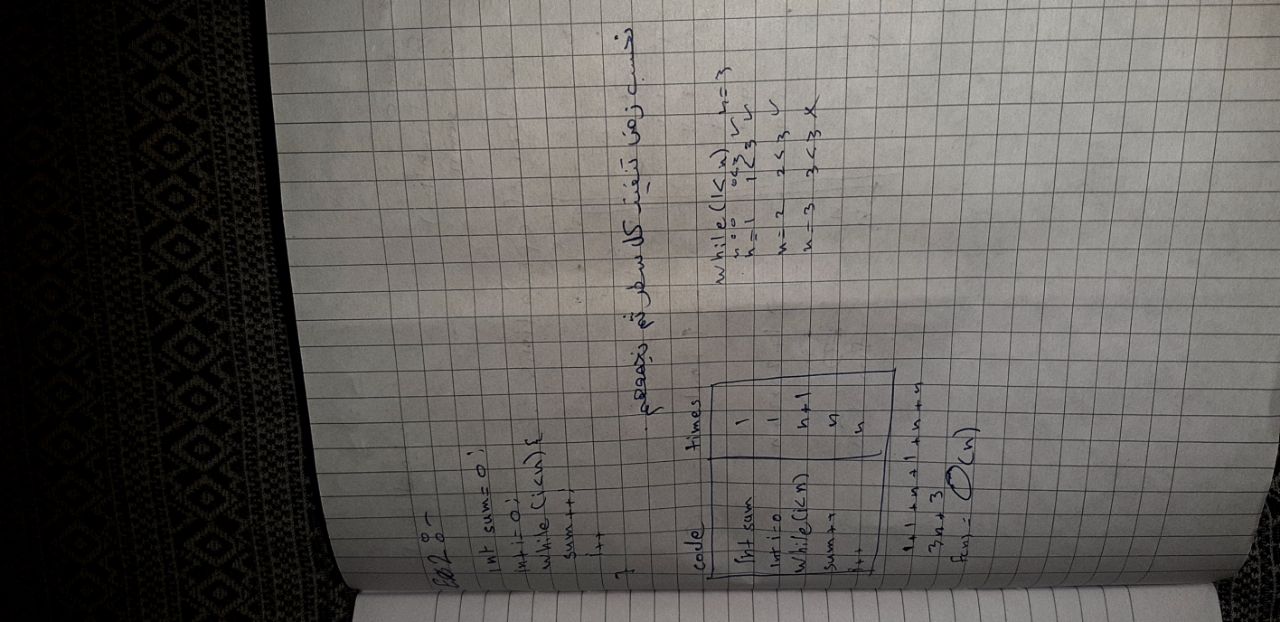 Ex2:-
int sum=0;
int i=0;
while(i<n){
sum++;
i++
}
نحسب زمن تنفيذ كل سطر ثم نجمعهم.
code times
int sum 1
int i=0 1
while(i<n) n+1
sum++ n
i++ n
1+1+n+1+n+n
3n+3
f(n)=O(n)
while(i<n) n=3
n=0 0<3 ✓
n=1 1<3 ✓
n=2 2<3 ✓
n=3 3<3 ✗